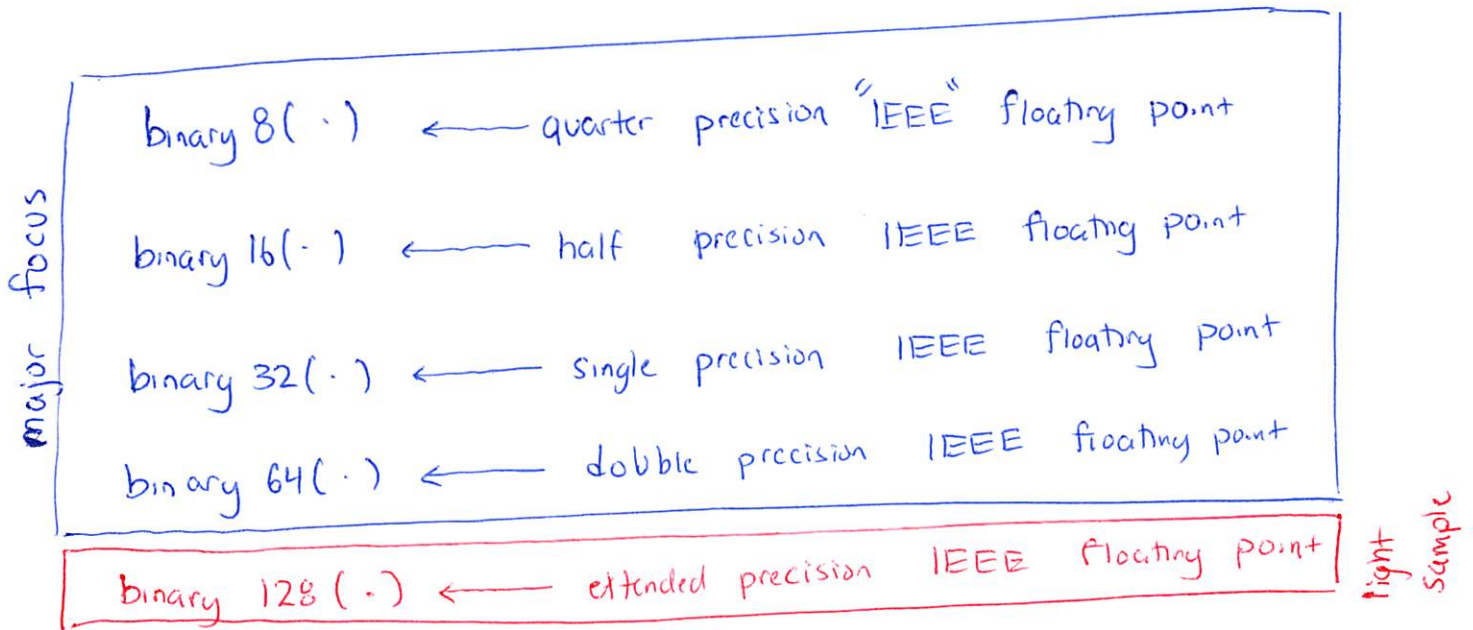 major focus
binary 8( · ) ← quarter precision "IEEE" floating point
binary 16( · ) ← half precision IEEE floating point
binary 32( · ) ← single precision IEEE floating point
binary 64( · ) ← dobble precision IEEE floating point
binary 128 ( · ) ← extended precision IEEE floating point
light
sample